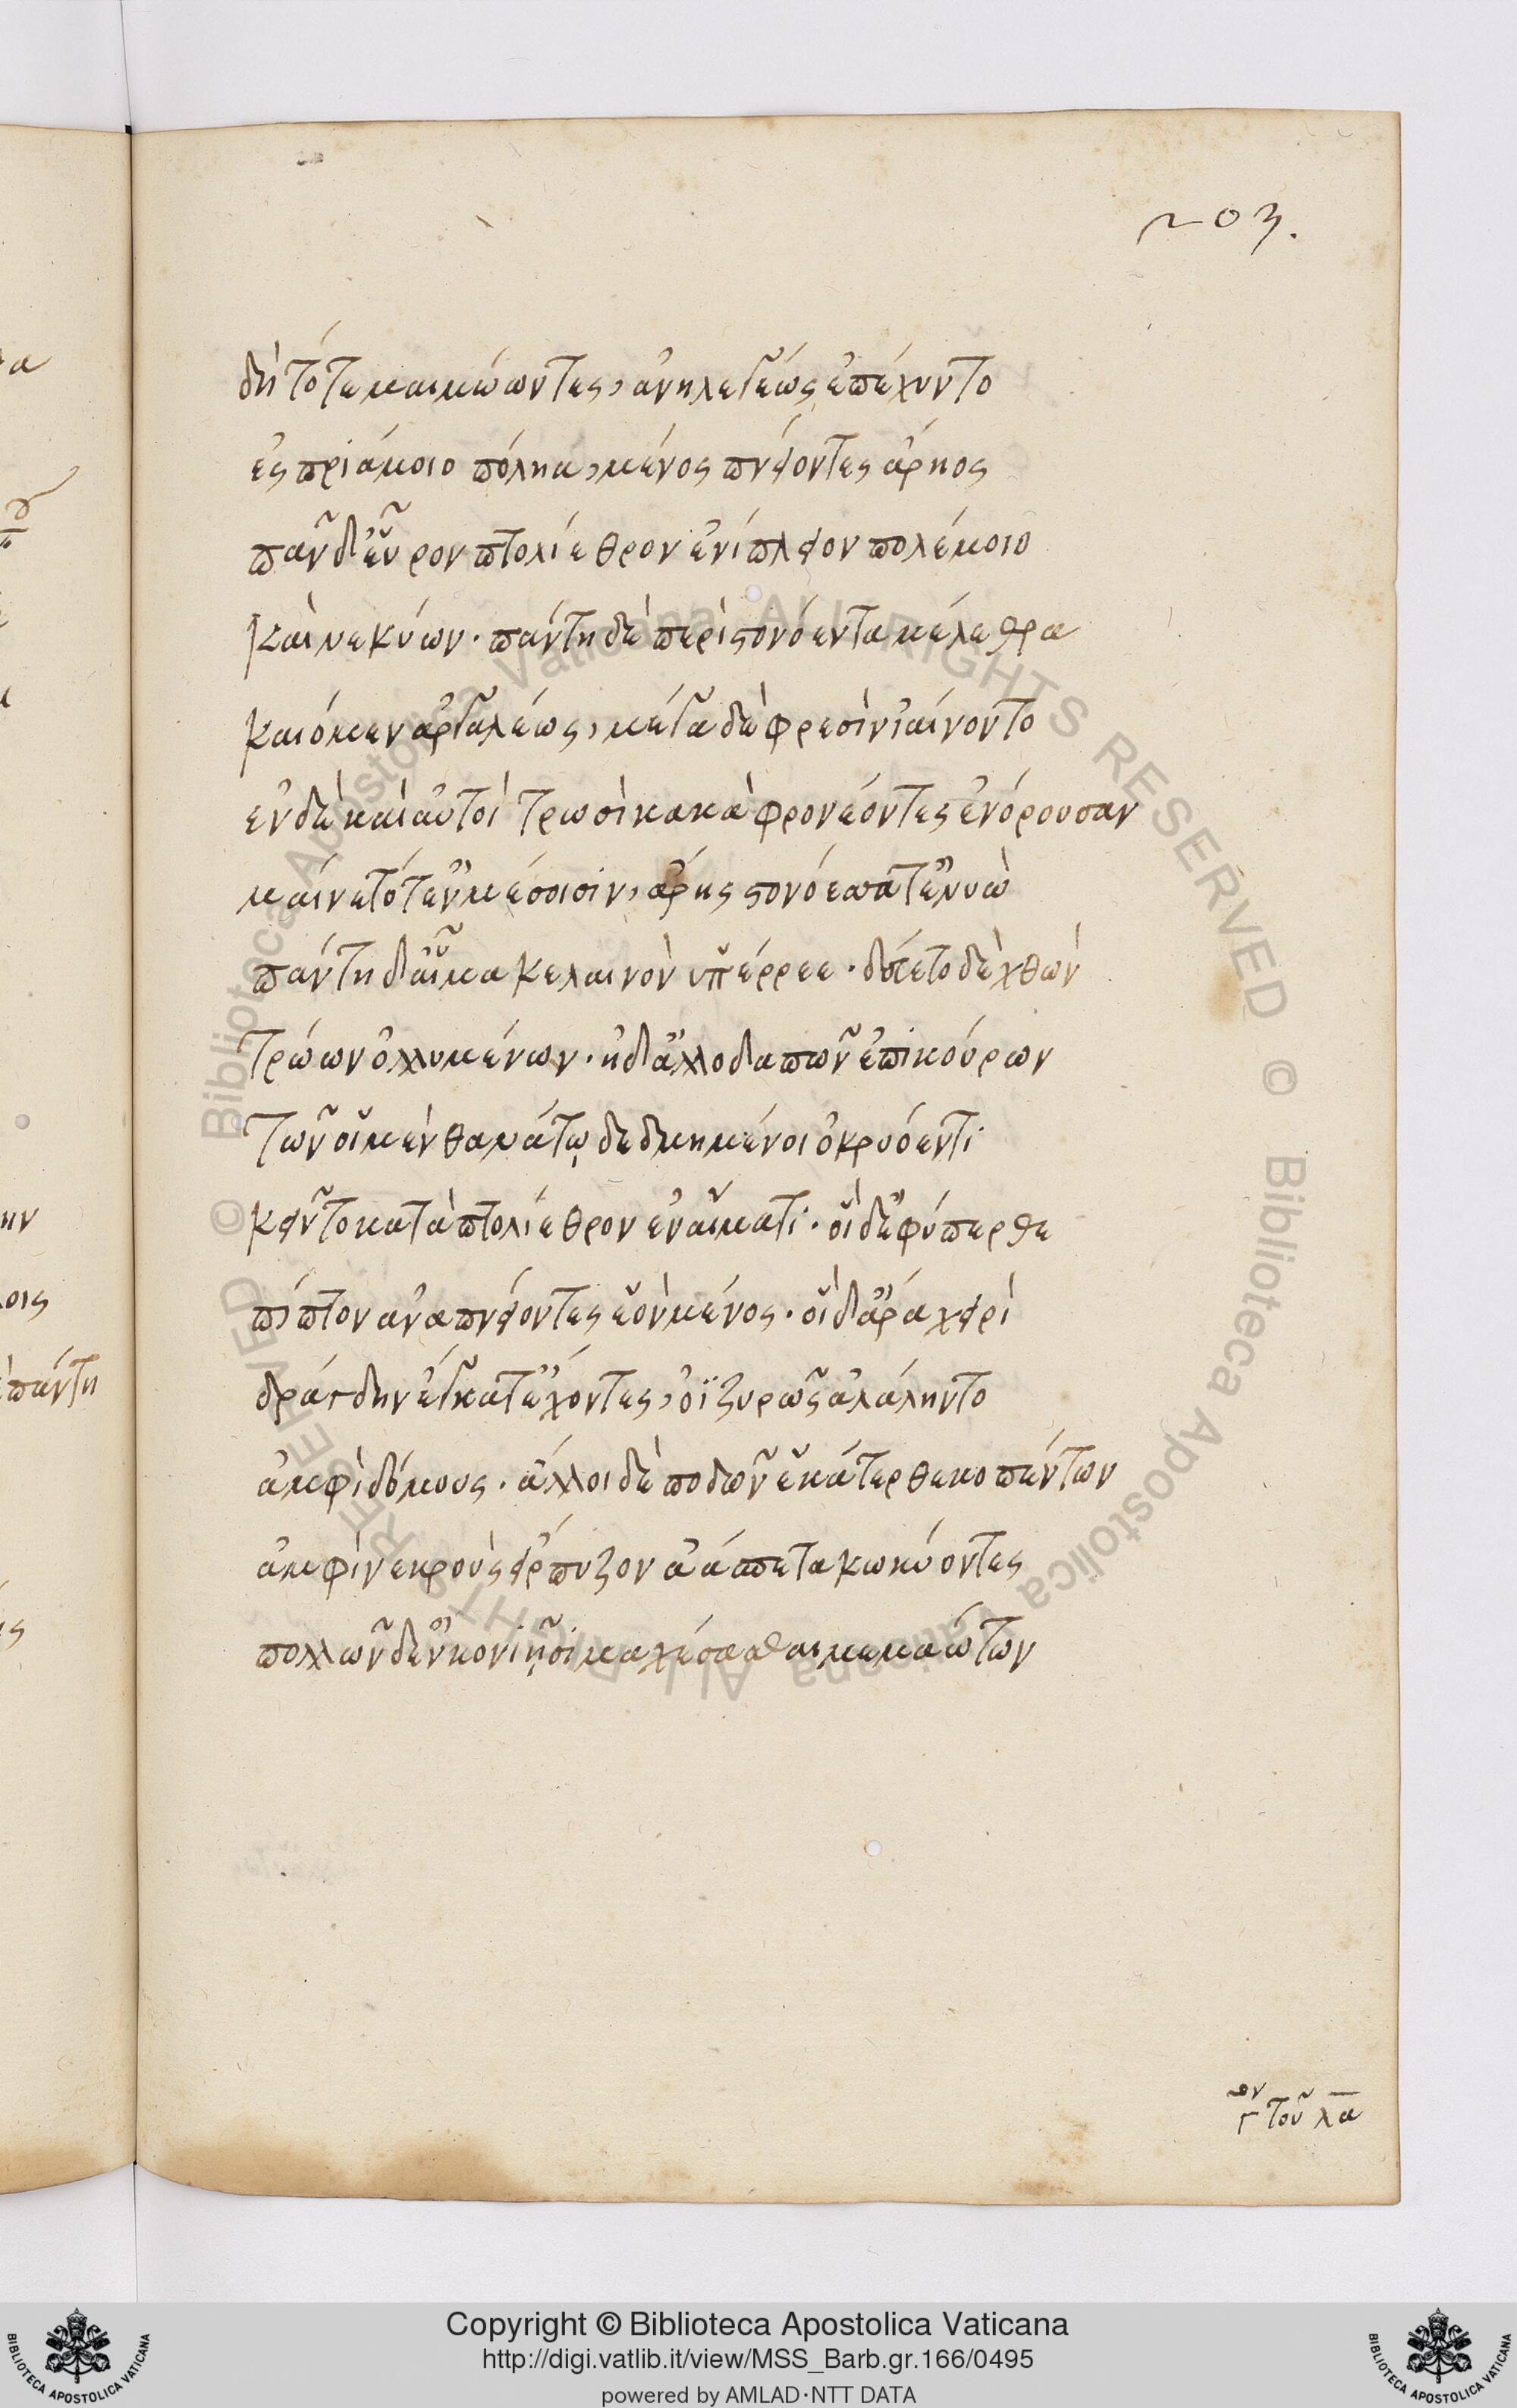 203.
δὴ τότε μαιμώωντες, ἀνηλεγέως ἐπέχυντο
ἐς πριάμοιο πόληα, μένος πνείοντες ἄρηος
πᾶν δ' εὗρον πτολίεθρον ἐνίπλειον πολέμοιο
καὶ νεκύων. πάντη δὲ περὶ στονόεντα μέλεθρα
καιόμεν ἀργαλέως, μέγα δὲ φρεσὶν ἰαίνοντο
ἐν δὲ καὶ αὐτοὶ τρωσὶ κακὰ φρονέοντες ἐνόρουσαν
μαίνετο τ' ἐν μέσοισιν, ἄρης στονόεσσα τ' ἐνυὼ
πάντη δ' αἷμα κελαινὸν ὑπέρρεε. δεύετο δὲ χθὼν
τρώων ὀλλυμένων. ἠδ' ἀλλοδαπῶν ἐπικούρων
τῶν οἳ μὲν θανάτῳ δεδμημένοι ὀκρυόεντι
κεῖντο κατὰ πτολίεθρον ἐν αἵματι. οἳ δ' ἐφύπερθε
πίπτον ἀναπνείοντες ἑὸν μένος. οἳ δ' ἄρα χειρὶ
δράγδην ἔγκατ' ἔχοντες, ὀϊζυρῶς ἀλάληντο
ἀμφὶ δόμους. ἄλλοι δὲ ποδῶν ἑκάτερθε κοπέντων
ἀμφὶ νεκροὺς εἵρπυζον ἀάσπετα κωκύοντες
πολλῶν δ' ἐν κονίῃσι μαχέσασθαι μεμαώτων
γον τοῦ λα
Copyright © Biblioteca Apostolica Vaticana
http://digi.vatlib.it/view/MSS_Barb.gr.166/0495
powered by AMLAD·NTT DATA